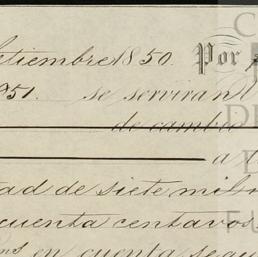 Setiembre 1850. Por
951. se serviran
de cambio
a
tad de siete mil
cuenta centavos
en cuenta segu